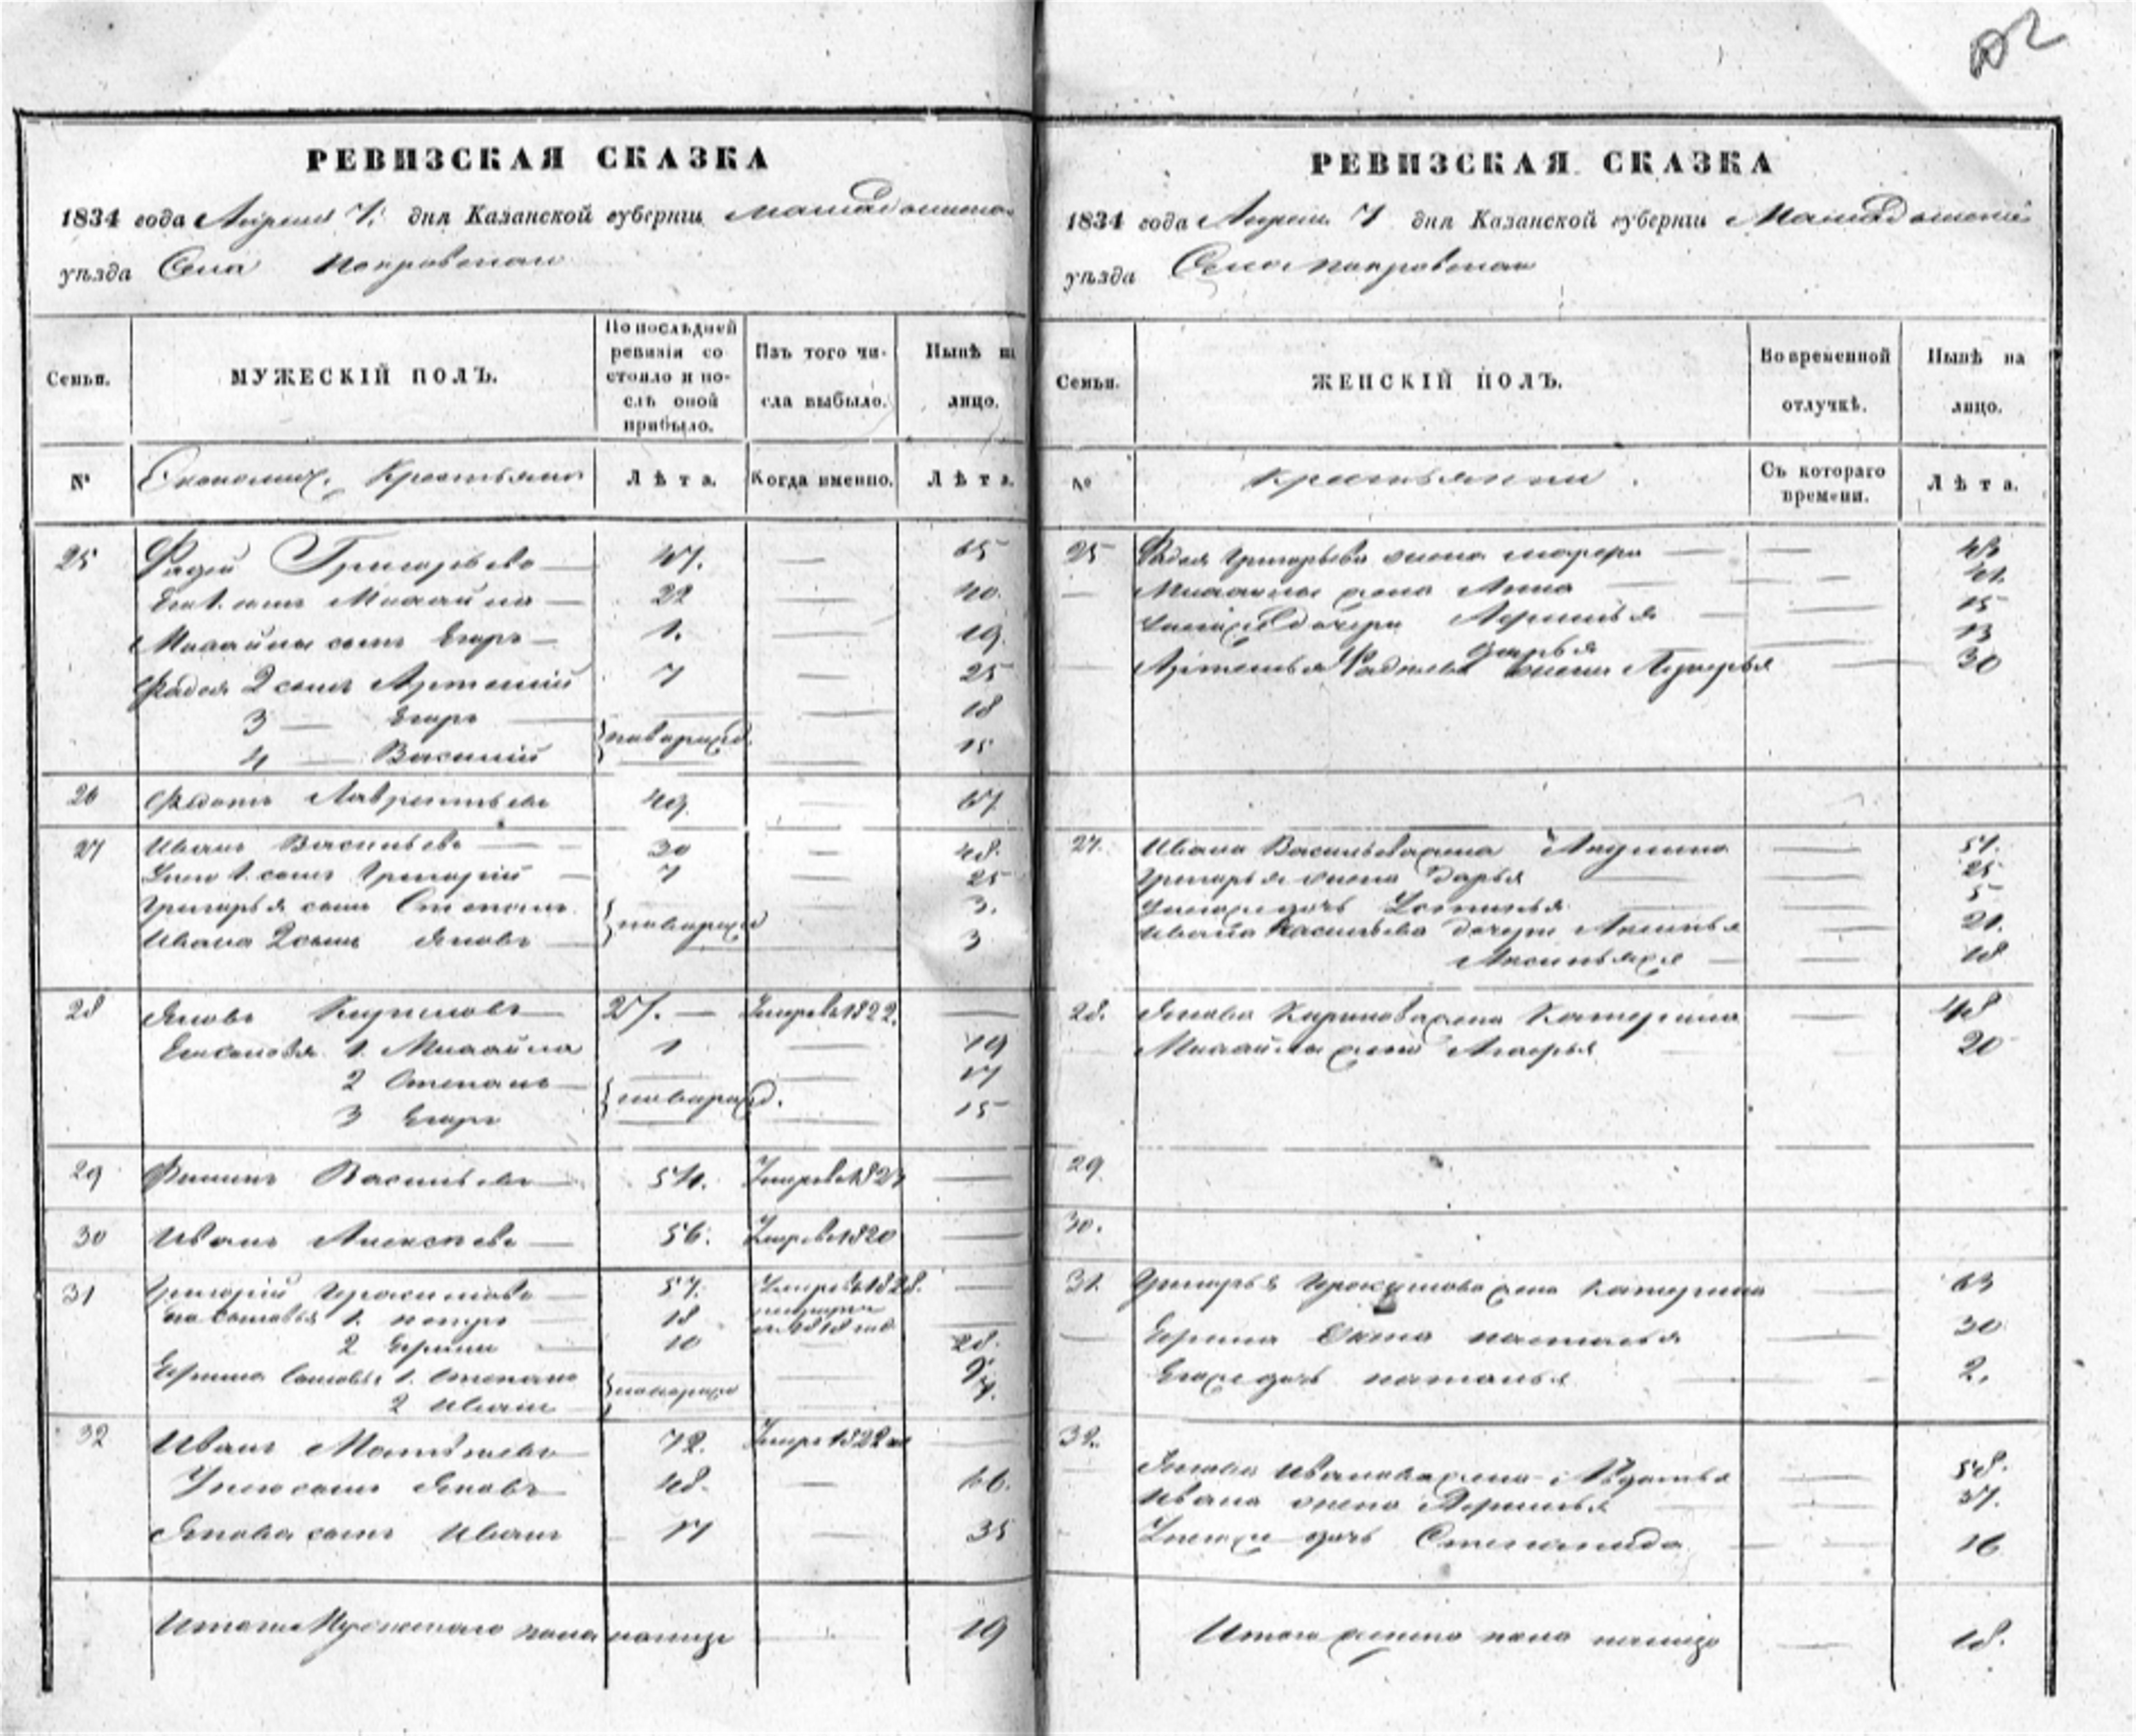 РЕВИЗСКАЯ СКАЗКА
1834 года Апреля 7. дня Казанской губерніи Мамадышскаго
уѣзда Села Покровскаго
Семьи.
МУЖЕСКІЙ ПОЛЪ.
По послѣдней ревизіи состояло и послѣ оной прибыло.
Изъ того числа выбыло.
Нынѣ на лицо.
№
Экономич. Крестьяне
Лѣта.
Когда именно.
Лѣта.
25 Фадей Григорьевъ 47. — 65
1. сынъ Михайла 22 — 40.
Михайлы сынъ Егоръ 1. — 19.
Фадея 2 сынъ Артемій 7 — 25
3 — Егоръ — 18
новорожд.
4 — Василій — 15
26 Федотъ Лаврентьевъ 49. — 67
27 Иванъ Васильевъ 30 — 48.
1. сынъ Григорій 7 — 25
Григорья сынъ Степанъ — 3.
новорожд
Ивана 2 сынъ Яковъ — 3
28 Яковъ Кириловъ 27. — Умеръ в 1822. —
1. Михайла 1 — 19
2 Степанъ — 17
новорожд.
3 Егоръ — 15
29 Филипъ Васильевъ 54. —
30 Иванъ Алексѣевъ 56. Умеръ в 1820 —
31 Григорій 57. Умеръ в 1828. —
сыновья 1. Петръ 18
в 1818 год —
2 Ефимъ 10 — 28.
Ефима сыновья 1. Степанъ — 9.
новорожд
2 Иванъ 7.
32 Иванъ Матвѣевъ 72. Умеръ 1822 —
У него сынъ Яковъ 48. — 66.
Якова сынъ Иванъ 17 — 35
Итого Мужескаго пола налицо — 19
РЕВИЗСКАЯ СКАЗКА
1834 года Апреля 7 дня Казанской губерніи Мамадышской
уѣзда Села Покровскаго
Семьи.
ЖЕНСКІЙ ПОЛЪ.
Во временной отлучкѣ.
Нынѣ на лицо.
№
Крестьянки.
Съ котораго времени.
Лѣта.
25 Фадея Григорьева жена —
Михайлы жена Анна — 41.
дочери — 15
Дарья — 13
Артемья Фадеева жена — 30
27. Ивана Васильева жена Акулина — 51.
Григорья жена Дарья — 25
дочь Устинья — 5
Ивана Васильева дочери — 21.
— 18
28. Якова Кирилова жена Катерина — 48
Михайлы жена Агафья 20
29.
30.
31. Григорья жена Катерина 63
Ефима жена Наталья — 30
дочь Наталья — 2.
32.
Якова Иванова жена Авдотья — 58.
Ивана жена — 37.
дочь Степанида — 16
Итого женска пола налицо — 18.